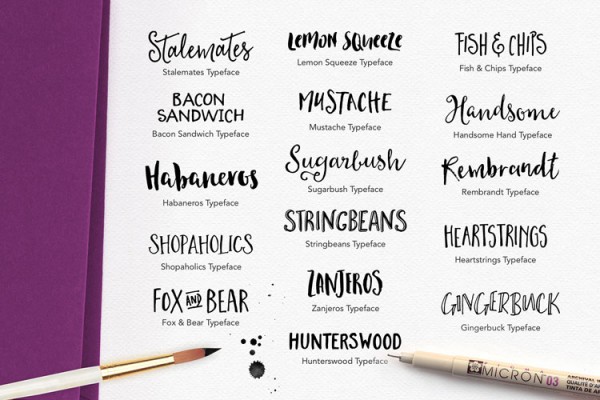 Stalemates
Stalemates Typeface
BACON
SANDWICH
Bacon Sandwich Typeface
Habaneros
Habaneros Typeface
SHOPAHOLICS
Shopaholics Typeface
FOX AND BEAR
Fox & Bear Typeface
LEMON SQUEEZE
Lemon Squeeze Typeface
MUSTACHE
Mustache Typeface
Sugarbush
Sugarbush Typeface
STRINGBEANS
Stringbeans Typeface
ZANJEROS
Zanjeros Typeface
HUNTERSWOOD
Hunterswood Typeface
FISH & CHIPS
Fish & Chips Typeface
Handsome
Handsome Hand Typeface
Rembrandt
Rembrandt Typeface
HEARTSTRINGS
Heartstrings Typeface
GINGERBUCK
Gingerbuck Typeface
MICRON 03
ARCHIVAL
QUALITÉ D'A
TINTA DE A